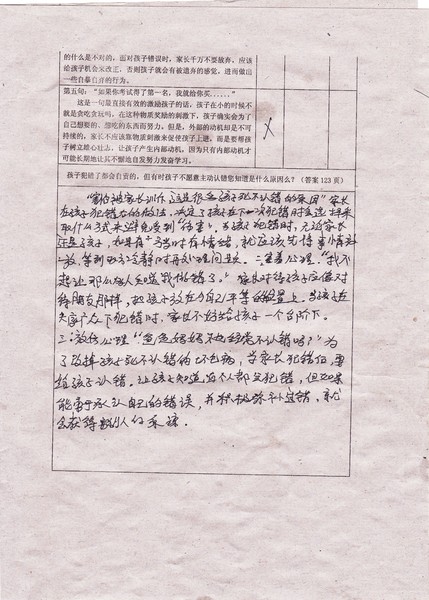 的什么是不对的，面对孩子错误时，家长千万不要放弃，应该
给孩子机会来改正，否则孩子就会有被遗弃的感觉，进而做出
一些自暴自弃的行为。
第五句：“如果你考试得了第一名，我就给你买……”
这是一句最直接有效的激励孩子的话，孩子在小的时候不
就是贪吃贪玩吗，在这种物质奖励的刺激下，孩子确实会为了
自己想要的、想吃的东西而努力。但是，外部的动机却是不可
持续的，家长不应该靠物质刺激来促使孩子上进，而是要帮孩
子树立雄心壮志，让孩子产生内部动机，因为只有内部动机才
可能长期地让其不懈地自发努力发奋学习。
孩子犯错了都会自责的，但有时孩子不愿意主动认错您知道是什么原因么？（答案 123 页）
家长训斥，这是很多孩子死不认错的原因”家长
在孩子犯错后的做法，决定了孩子在下一次犯错时会选择采
取什么方式来避免受到“伤害”。当孩子犯错时，无论家长
还是孩子，如果有“当时有情绪，就应该先将事情放
一放，等到双方冷静时再处理问题。二：“我不
想让那么多人知道我做错了。”家长对待孩子应像对
待朋友那样，把孩子放在与自己平等的位置上。当孩子在
大家广众下犯错时，家长不妨给孩子一个台阶下。
三：心理“爸爸妈妈不也经常不认错吗？”为
了改掉孩子死不认错的坏毛病，当家长犯错后，要
给孩子认错。让孩子知道每个人都会犯错，但如果
能勇于承认自己的错误，并积极弥补过错，就
会获得别人的